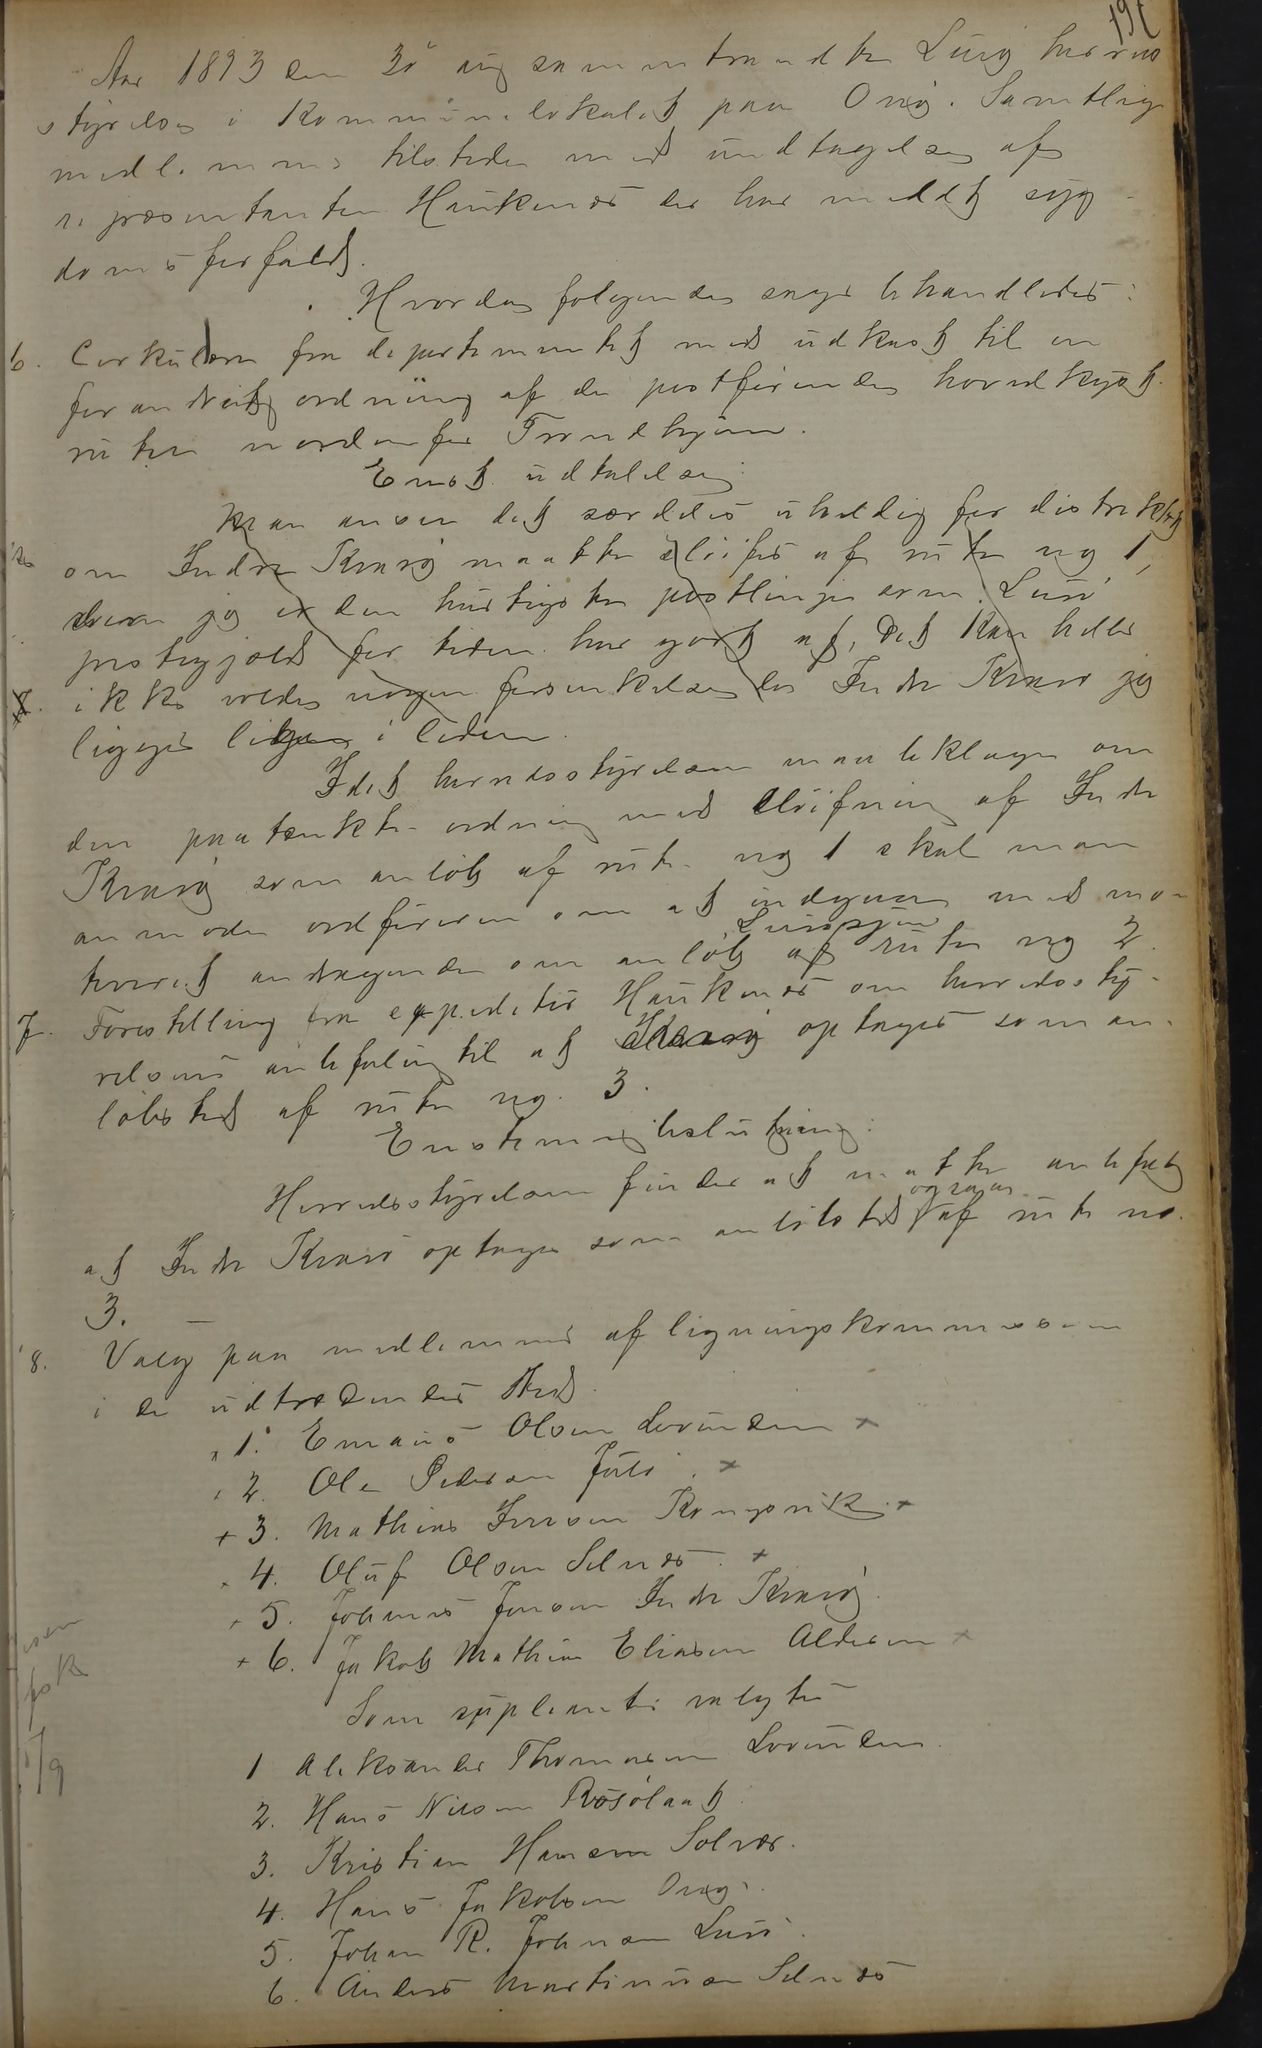 191
Aar 1893 den 30 aug sammentraadte Lurø herreds
styrelse i Kommunelokalet paa Onø. Samtlige
medlemmer tilstede med undtagelse af
repræsentanten Haukenæs der har meldt syg
domsforfald.
Hvorda følgende sager behandledes:
6. Cirkulære fra departementet med udkast til en
forandret ordning af de postførende hovedkyst
ruter nordenfor Trondhjem.
Enst. udtalelse:
Man anser det særdeles uheldig for distriktet
om Indre Kvarø maatte sløifes af rute no 1,
den hurtigste postlinje som Lurø
prestegjæld for tiden har gjort af, Det kan heller
ikke voldes nogen forsinkelse da Indre Kvarø jo
ligger i leden.
Idet herredsstyrelsen maa beklage om
den paatænkte ordning med sløifning af Indre
Kvarø som anløb af rute no 1 skal man
anmode ordføreren om at indgaa med mo-
tiveret andragende om anløb af Lurø rute no 2.
7. Forestilling fra expeditør Haukenæs om herredssty-
relsens anbefaling til at Kvarø optages som an-
løbsted af rute no. 3.
Enstemmig beslutning:
Herredsstyrelsen finder at maatte anbefale
at Indre Kvarø optages som anløbsted ogsaa af rute no.
3. —
8. Valg paa medlemmer af ligningskommissionen
i de udtrædendes sted.
1. Emaus Olsen Lovunden
2. Ole Pedersen
3. Mathias Iversen Kongsvik
4. Oluf Olsen Selnæs
5. Johannes Jensen Indre Kvarø
6. Jakob Mathias Eliasen Aldersun
Som suppleanter valgtes
1 Aleksander Thomasen Lovunden
2. Hans Nilsen Røsølaat
3. Kristian Hansen Solvær.
4. Hans Jakobsen Onø.
5. Johan R. Johnsen Lurø.
6. Anders Martinusen Selnæs